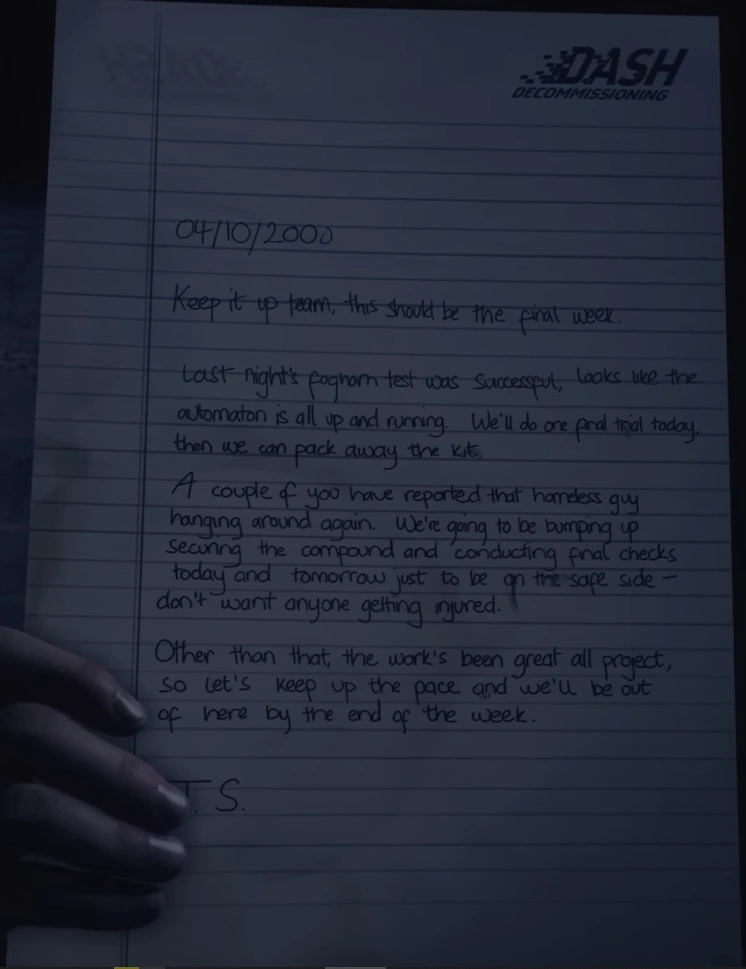 DASH
DECOMMISSIONING
04/10/2000
Keep it up team, this should be the final week.
Last night's foghorn test was successful, looks like the
automaton is all up and running. We'll do one final trial today,
then we can pack away the kit.
A couple of you have reported that homeless guy
hanging around again. We're going to be bumping up
securing the compound and conducting final checks
today and tomorrow just to be on the safe side –
don't want anyone getting injured.
Other than that, the work's been great all project,
so let's keep up the pace and we'll be out
of here by the end of the week.
T. S.